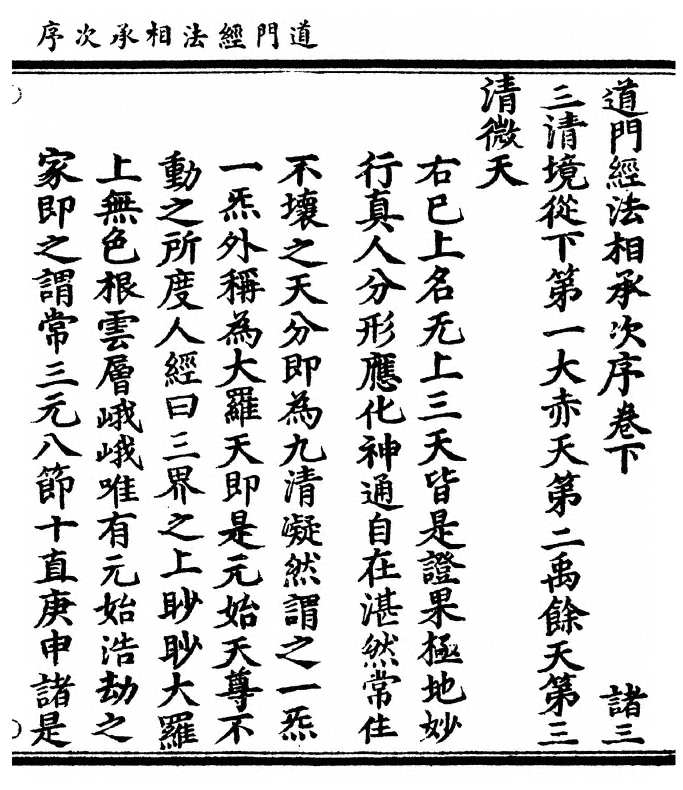 道門經法相承次序
道門經法相承次序卷下 諸三
三清境從下第一大赤天第二禹餘天第三
清微天
右巳上名无上三天皆是證果極地妙
行真人分形應化神通自在湛然常住
不壞之天分即為九清凝然謂之一炁
一炁外稱為大羅天即是元始天尊不
動之所度人經曰三界之上眇眇大羅
上無色根雲層峨峨唯有元始浩劫之
家即之謂常三元八節十直庚申諸是